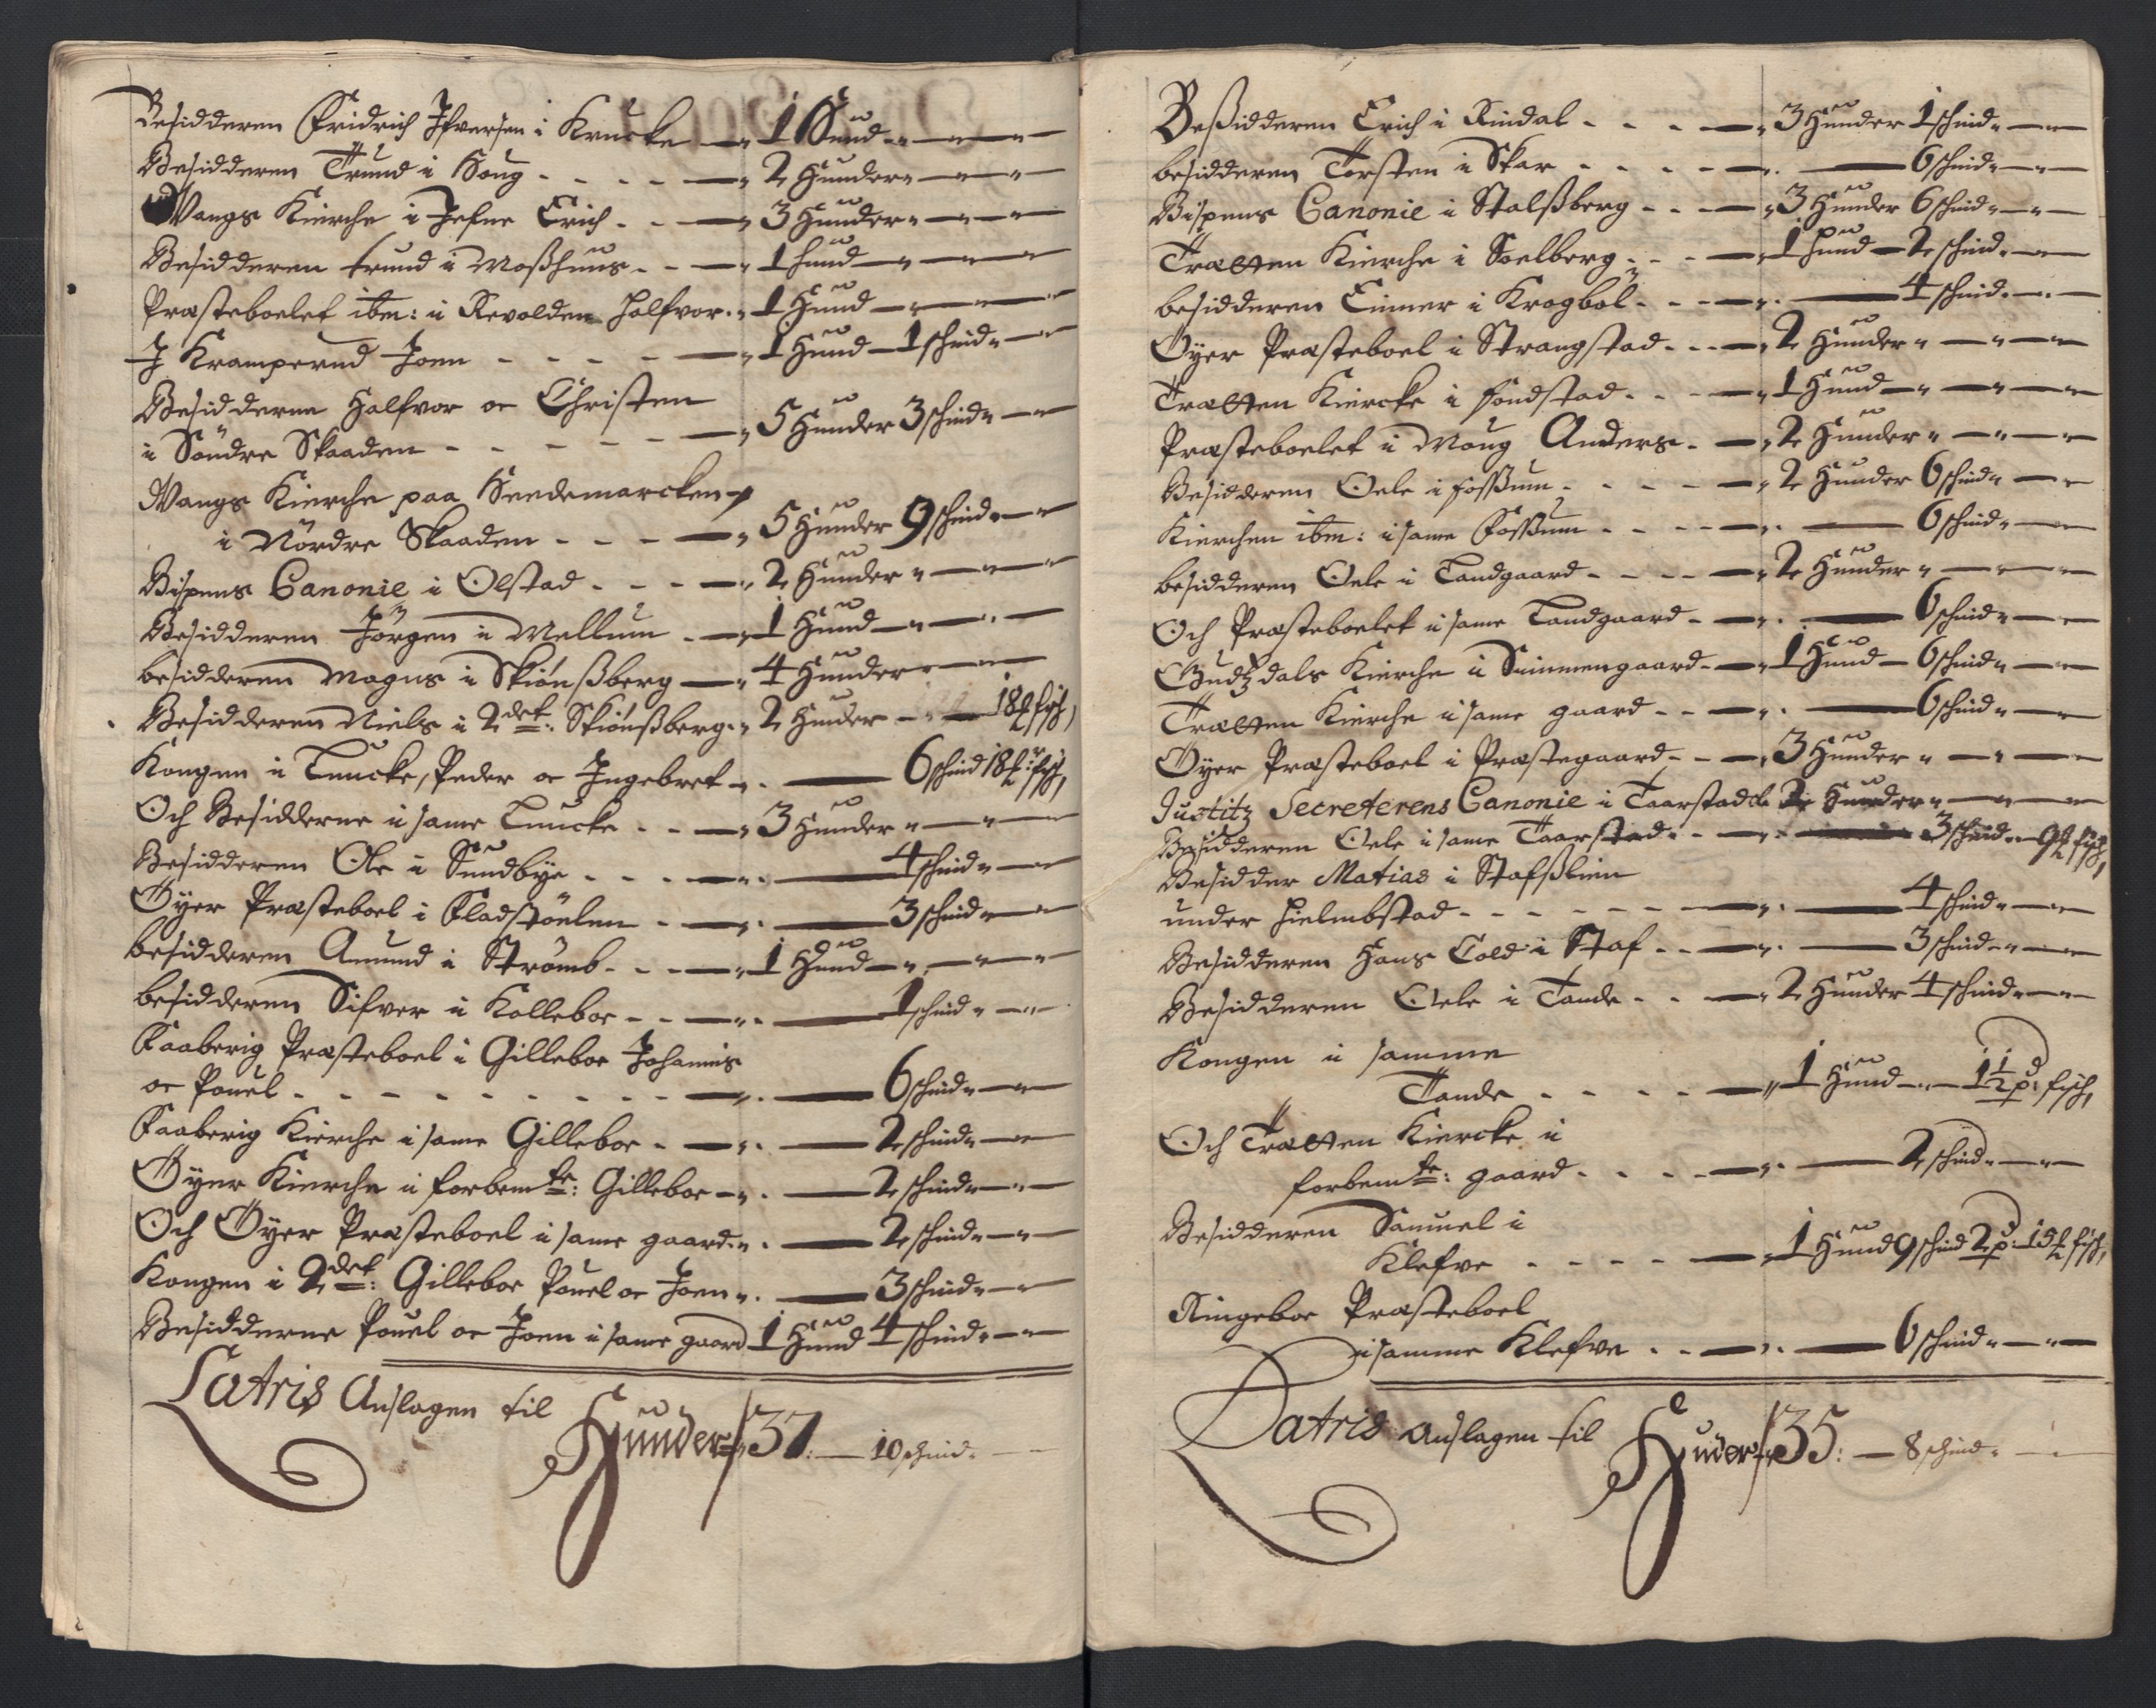 Besidderen Fridrich Ifversen i Krucke — 1 Hund
Besidderen Trund i Houg — 2 Hunder
Wangs Kierche i Jefne Erich — 3 Hunder
Besidderen trund i Moßhuus — 1 hund
Præsteboelet ibm: i Revolden Halfvor — 1 Hund
I Krampernd Joen — 1 Hund — 1 schind
Besidderne Halfvor oc Christen
i Söndre Skaaden — 5 Hunder 3 schind
Wangs Kierche paa Heedemarcken
i Nordre Skaaden — 5 Hunder 9 schind
Bispens Canonie i Olstad — 2 Hunder
Besidderen Jörgen i Mellum — 1 Hund
besidderen Magns i Skiönßberg — 4 Hunder
Besidderen Niels i 2det: Skiönßberg — 2 Hunder — 18 fisch
Kongen i Luncke, Peder oc Ingebret — 6 schind 18 fisch
Och Besidderne i same Luncke — 3 Hunder
Besidderen Ole i Sundbye — 4 schind
Öyer Præsteboel i Fladstöelen — 3 schind
besidderen Amund i Strömb — 1 Hund
besidderen Sifver i Kolleboe — 1 schind
Faaberig Præsteboel i Gilleboe Johannis
oc Pouel — 6 schind
Faaberig Kierche i same Gilleboe — 2 schind
Öyer Kierche i forbemte: Gilleboe — 2 schind
Och Öyer Præsteboel i same gaard — 2 schind
Kongen i 2det: Gilleboe Pouel oc Joen — 3 schind
Besidderne Pouel oc Joen i same gaard 1 Hund 4 schind
Latris Anslagen til Hunder 37: — 10 schind
Beßidderen Erich i Rindal — 3 Hunder 1 schind
besidderen Torsten i Skar — 6 schind
Bispens Canonie i Stalßberg — 3 Hunder 6 schind
Tretten Kierche i Soelberg — 1 hund — 2 schind
besidderen Einer i Krogböl — 4 schind
Öyer Præsteboel i Strangstad — 2 Hunder
Tretten Kiercke i Fondstad — 1 Hund
Præsteboelet i Moug Anders — 2 Hunder
Besidderen Oele i Foßum — 2 Hunder 6 schind
Kierchen ibm: i same Foßum — 6 schind
besidderen Oele i Landgaard — 2 Hunder
Och Præsteboelet i same Landgaard — 6 schind
Gudtzdals Kierche i Suimmengaard — 1 Hund — 6 schind
Tretten Kierche i same gaard — 6 schind
Öyer Præsteboel i Præstegaard — 3 Hunder
Justitz Secreterens Canonie i Taarstad 2 Hunder
Besidderen Oele i same Taarstad — 3 schind 9 fisch
Besidder Matias i Stafßlien
under Hielmbstad — 4 schind
Besidderen Hans Cold i Staf — 3 schind
Besidderen Oele i Tande — 2 Hunder 4 schind
Kongen i samme
Tande — 1 Hund — 1 1/2 pd: fisch
Och Tretten Kiercke i
forbemte: gaard — 2 schind
Besidderen Samuel i
Klefve — 1 Hund 9 schind 2 pd: fisch
Ringeboe Præsteboel
i samme Klefve — 6 schind
Latris Anslagen til Huder 35: — 8 schind